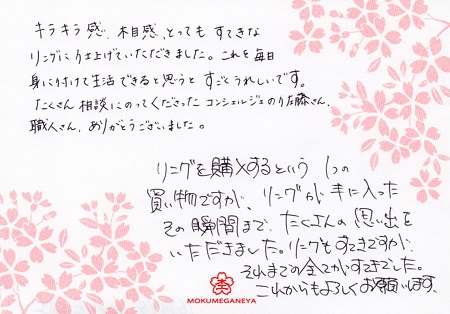 キラキラ感、木目感、とっても すてきな
リングに仕上げていただきました。これを毎日
身に付けて生活できると思うと すごくうれしいです。
たくさん相談にのってくださった コンシェルジュの佐藤さん、
職人さん、ありがとうございました。
リングを購入するという 1つの
買い物ですが、リングが手に入った
その瞬間まで、たくさんの思い出を
いただきました。リングもすてきですが、
それまでの全てがすてきでした。
これからもよろしくお願いします。
MOKUMEGANEYA